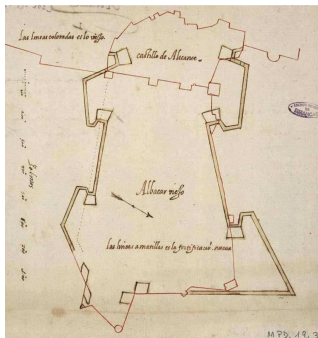 Las lineas coloradas es lo viejo.
castillo de Alicante.
Albacar viejo
las lineas amarillas es la fortificació nueva
M.P.D. 19, 3